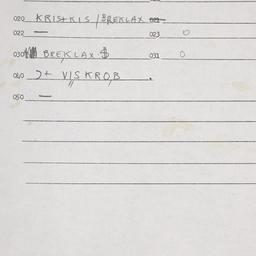 020 KRISTKIS / BREKLAX
022 — 023 0
030 BREKLAX $ 031 0
040 > + VISKROB .
050 —